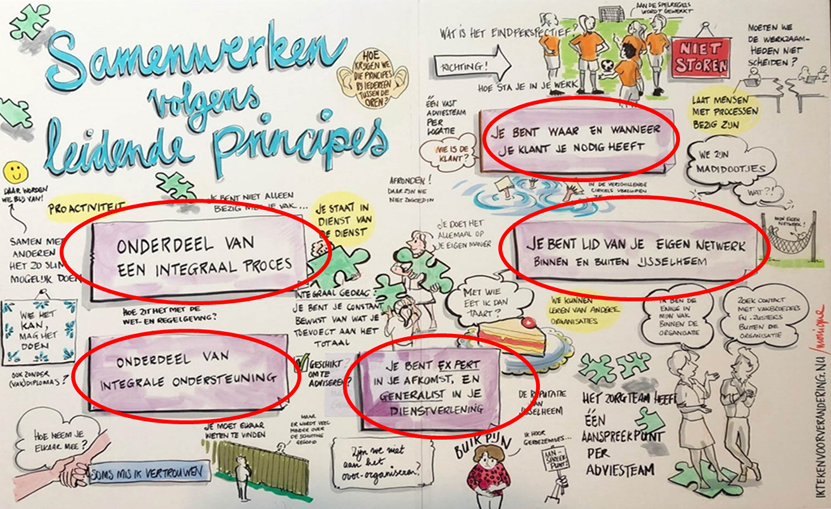 Samenwerken
volgens
leidende principes
HOE
KRIJGEN WE
DIE PRINCIPES
BIJ IEDEREEN
TUSSEN DE
OREN?
WAT IS HET EINDPERSPECTIEF?
RICHTING!
HOE STA JE IN JE WERK
AAN DE SPELREGELS
WORDT GEWERKT
NIET
STOREN
MOETEN WE
DE WERKZAAM-
HEDEN NIET
SCHEIDEN?
ÉÉN VAST
ADVIESTEAM
PER
LOCATIE
WIE IS DE
KLANT?
JE BENT WAAR EN WANNEER
JE KLANT JE NODIG HEEFT
LAAT MENSEN
MET PROCESSEN
BEZIG ZIJN
WE ZIJN
MADIDOOTJES
WAT?!
DAAR WORDEN
WE BLIJ VAN!
PROACTIVITEIT
JE BENT NIET ALLEEN
BEZIG MET JE VAK...
AFRONDEN!
DAAR ZIJN WE
NIET ZO GOED IN
IN DE VERSCHILLENDE
CIRKELS
SAMEN MET
ANDEREN
HET ZO SLIM
MOGELIJK DOEN
ONDERDEEL VAN
EEN INTEGRAAL PROCES
JE STAAT IN
DIENST VAN
DE DIENST
JE DOET HET
ALLEMAAL OP
JE EIGEN MANIER
JE BENT LID VAN JE EIGEN NETWERK
BINNEN EN BUITEN IJSSELHEEM
MIJN EIGEN
NETWERK
HOE ZIT HET MET DE
WET- EN REGELGEVING?
INTEGRAAL GEDRAG:
JE BENT JE CONSTANT
BEWUST VAN WAT JE
TOEVOEGT AAN HET
TOTAAL
MET WIE
EET IK DAN
TAART?
WE KUNNEN
LEREN VAN ANDERE
ORGANISATIES
IK BEN DE
ENIGE IN
MIJN VAK
BINNEN DE
ORGANISATIE
ZOEK CONTACT
MET VAKBROEDERS
EN ZUSTERS
BUITEN DE
ORGANISATIE
WIE HET
KAN,
MAG HET
DOEN
OOK ZONDER
(VAK)DIPLOMA'S?
ONDERDEEL VAN
INTEGRALE ONDERSTEUNING
GESCHIKT
OM TE
ADVISEREN?
JE BENT EXPERT
IN JE AFKOMST, EN
GENERALIST IN JE
DIENSTVERLENING
DE REPUTATIE
VAN
IJSSELHEEM
HET ZORGTEAM HEEFT
ÉÉN
AANSPREEKPUNT
PER
ADVIESTEAM
HOE NEEM JE
ELKAAR MEE?
SOMS MIS IK VERTROUWEN
JE MOET ELKAAR
WETEN TE VINDEN
MAAR
ER WORDT VEEL
MINDER OVER
DE SCHUTTING
GEGOOID
Zijn we niet
aan het
over-organiseren?
BUIKPIJN
IK HOOR
AAN-
SPREEK
PUNT!
IKTEKENVOORVERANDERING.NU/monique